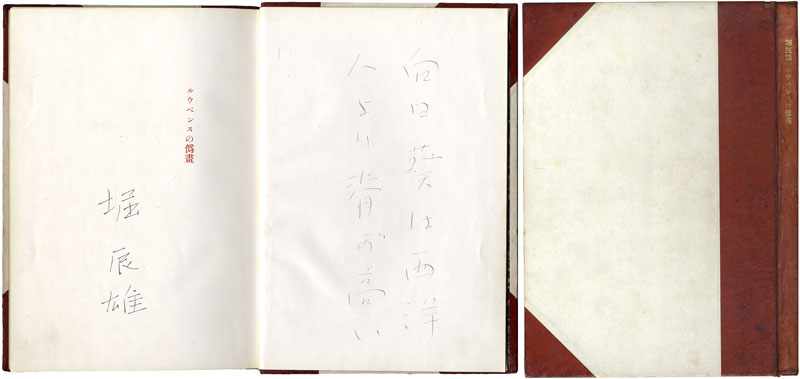 向日葵は西洋
人より背が高い
ルウベンスの僞畫
堀辰雄
ルウベンスの僞畫